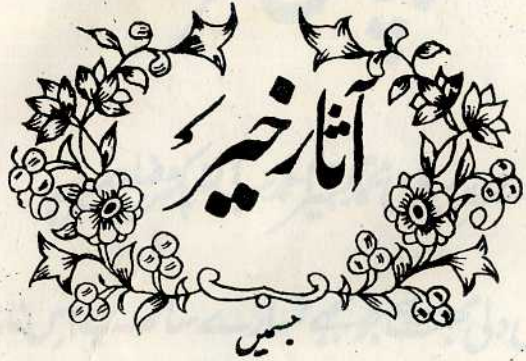 آثار خیر
جسمیں